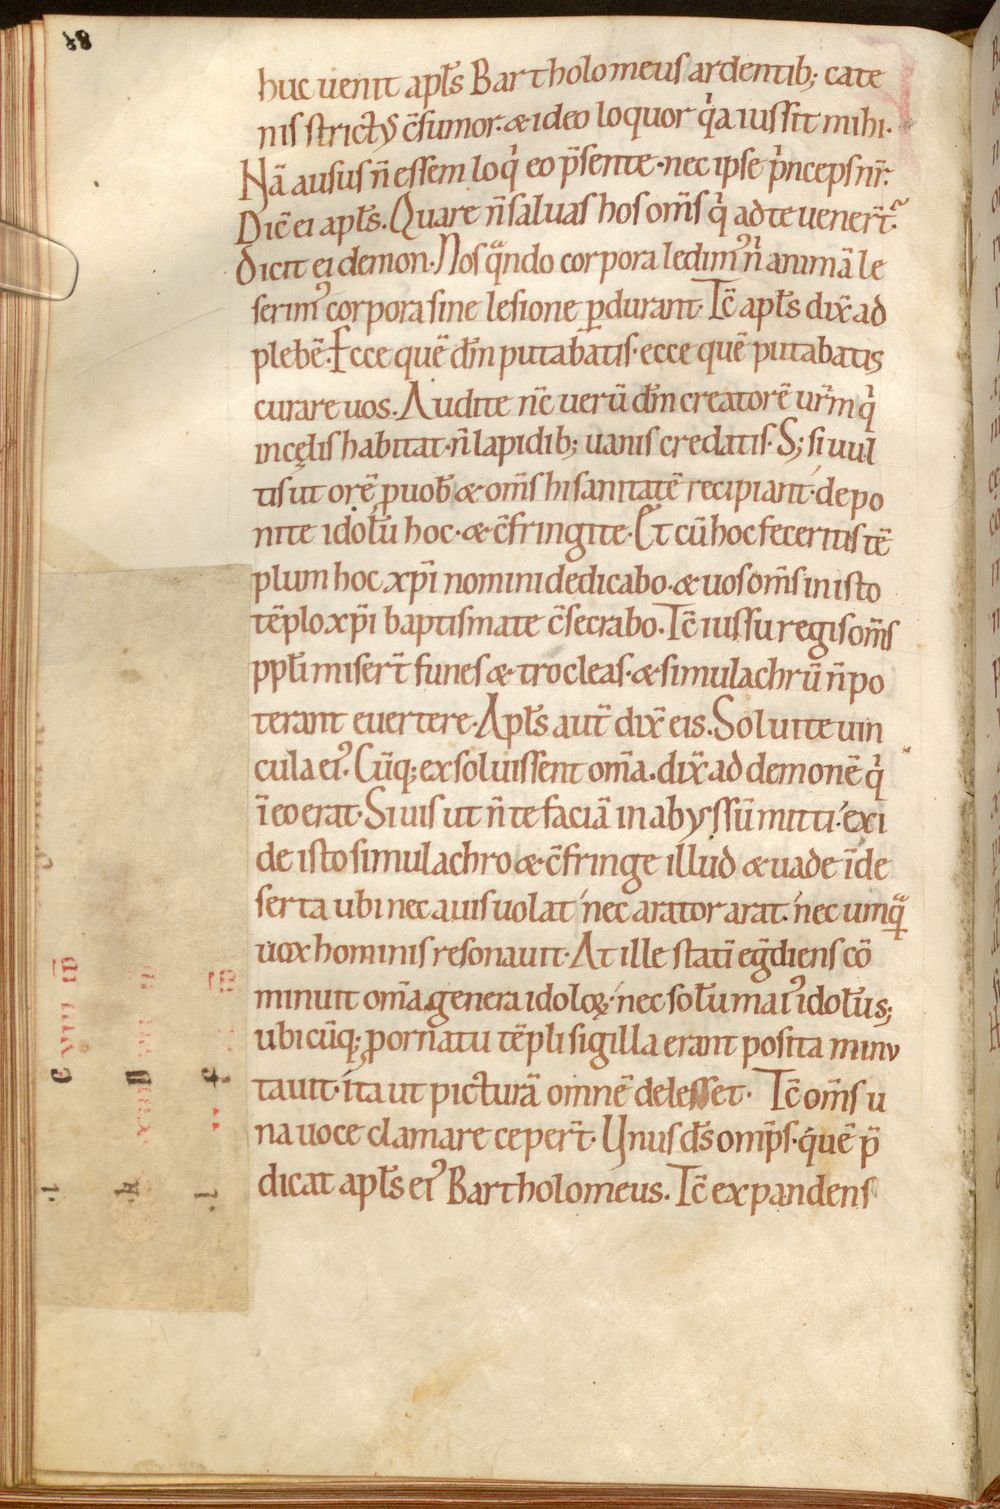 48
huc uenit apl̃s Bartholomeus ardentib; cate
nis strictꝰ c̃sumor. & ideo loquor q̇a iussit mihi.
Nã ausus ñ essem loqi̇ eo p̃sente. nec ipse pi̇nceps nr̃.
Dic̃ ei apl̃s. Quare ñ saluas hos om̃s qi̇ ad te uener̃t.
dicit ei demon. Nos qᷓndo corpora ledimꝰ ñ animã le
serimꝰ corpora sine lesione ꝑdurant. Tc̃ apl̃s dix̃ ad
plebẽ. Ecce quẽ dm̃ putabatis. ecce quẽ putabatis
curare uos. Audite nc̃ uerũ dm̃ creatorẽ ur̃m qi̇
in cęlis habitat. ñ lapidib; uanis credatis. S; si uul
tis ut orẽ ꝓ uob̃ & om̃s hi sanitatẽ recipiant. depo
nite idol̃u hoc. & c̃fringite. Et cũ hoc feceritis tẽ
plum hoc xp̃i nomini dedicabo. & uos om̃s in isto
tẽplo xp̃i baptismate c̃secrabo. Tc̃ iussu regis om̃s
ppl̃i miser̃t funes & trocleas. & simulachrũ ñ po
terant euertere. Apl̃s aut̃ dix̃ eis. Soluite uin
cula eiꝰ. Cũq; exsoluissent om̃a. dix̃ ad demonẽ qi̇
ĩ eo erat. Si uis ut ñ te faciã in abyssũ mitti. exi
de isto simulachro & c̃fringe illud & uade ĩ de
serta ubi nec auis uolat nec arator arat. nec umqᷓ
uox hominis resonauit. At ille statĩ eg̃diens cõ
minuit om̃a genera idoloꝝ. nec sol̃u maiꝰ idol̃u s;
ubicũq; ꝓ ornatu tẽpli sigilla erant posita minu
tauit. ita ut picturã omnẽ delesset. Tc̃ om̃s u
na uoce clamare ceper̃t. Unus ds̃ omp̃s. quẽ p̃
dicat apl̃s eiꝰ Bartholomeus. Tc̃ expandens